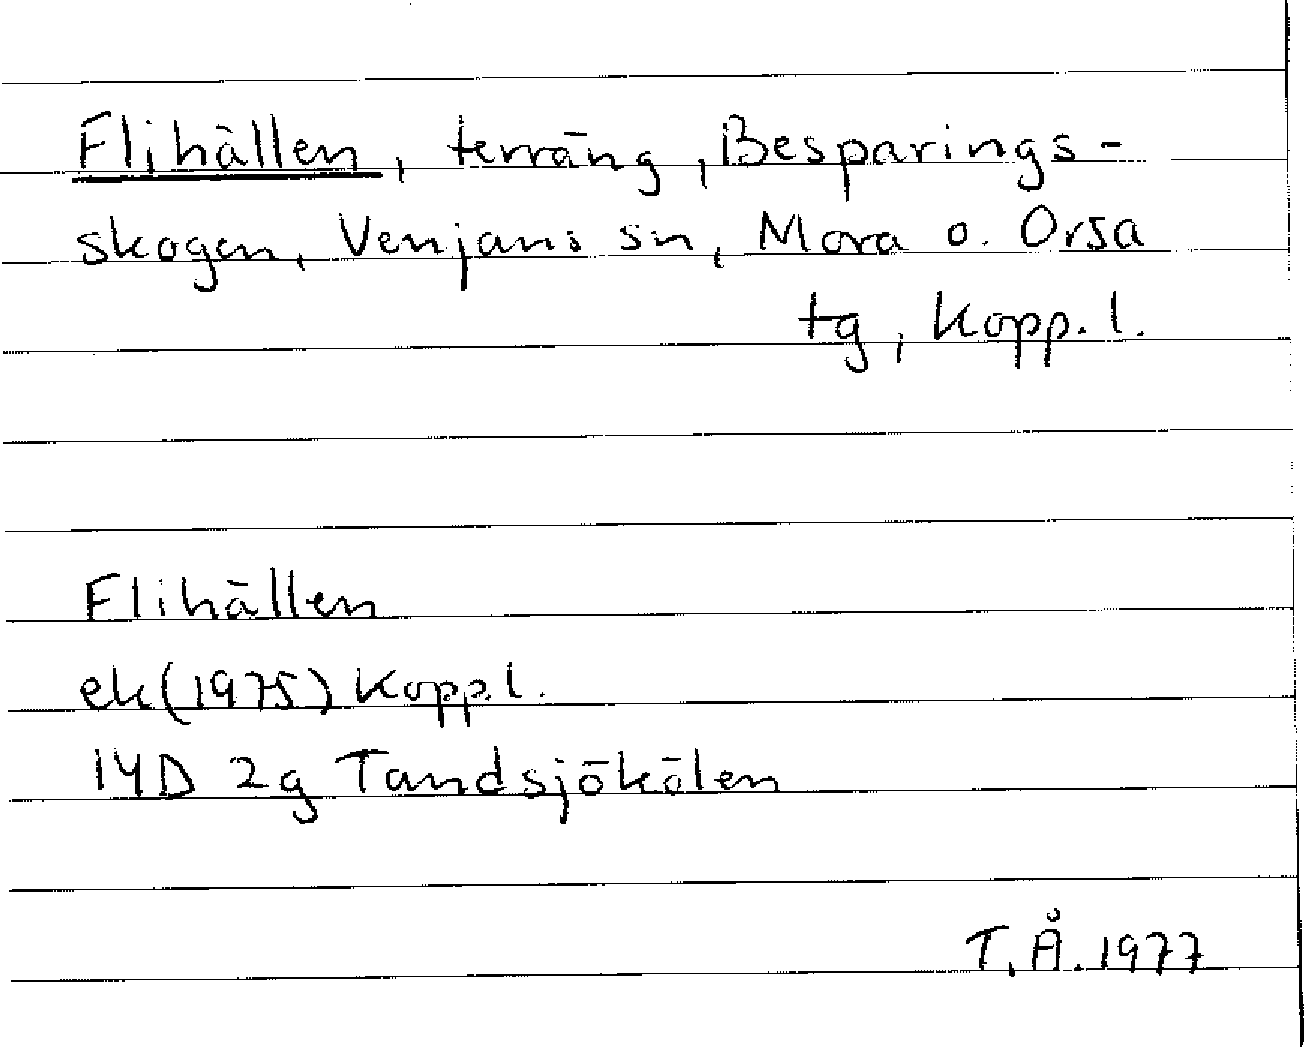 Elihällen, terräng, Besparings-
skogen, Venjans sn, Mora o. Orsa
tg, Kopp. l.
Elihällen
ek (1975) Kopp.l.
14D 2g Tandsjökölen
T.Å. 1977